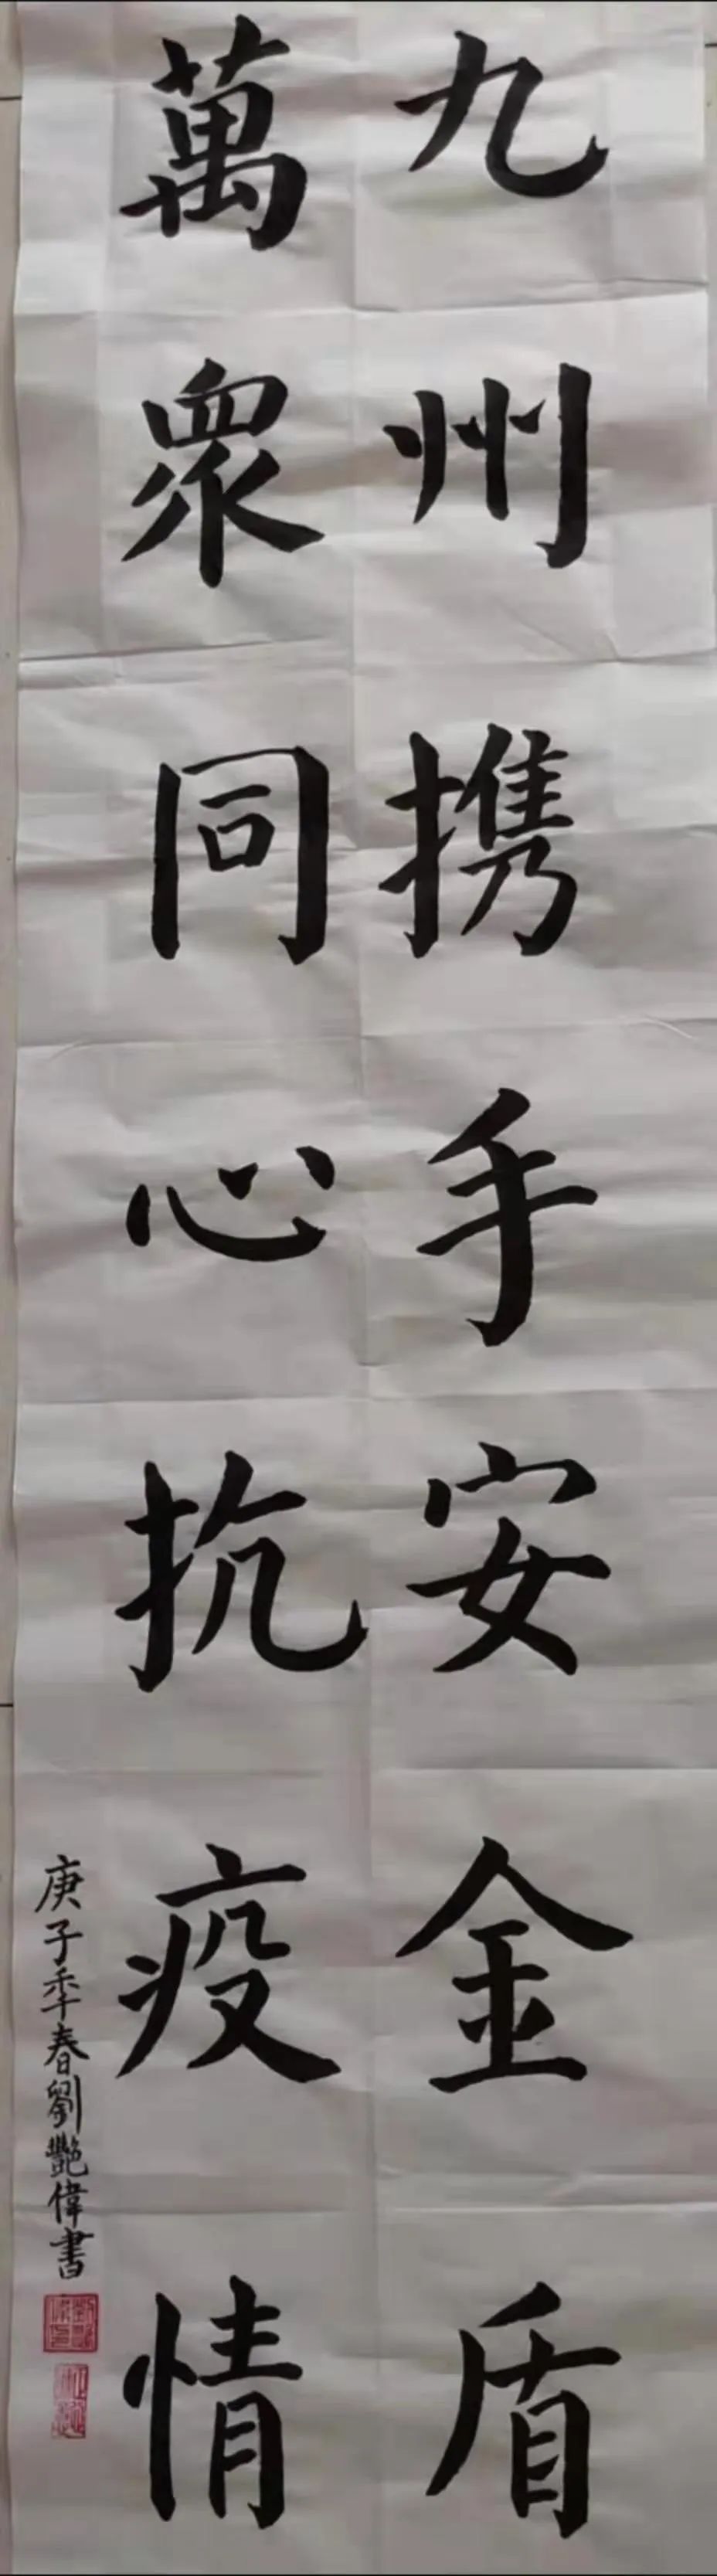 九州携手安金盾
萬衆同心抗疫情
庚子季春劉艷偉書